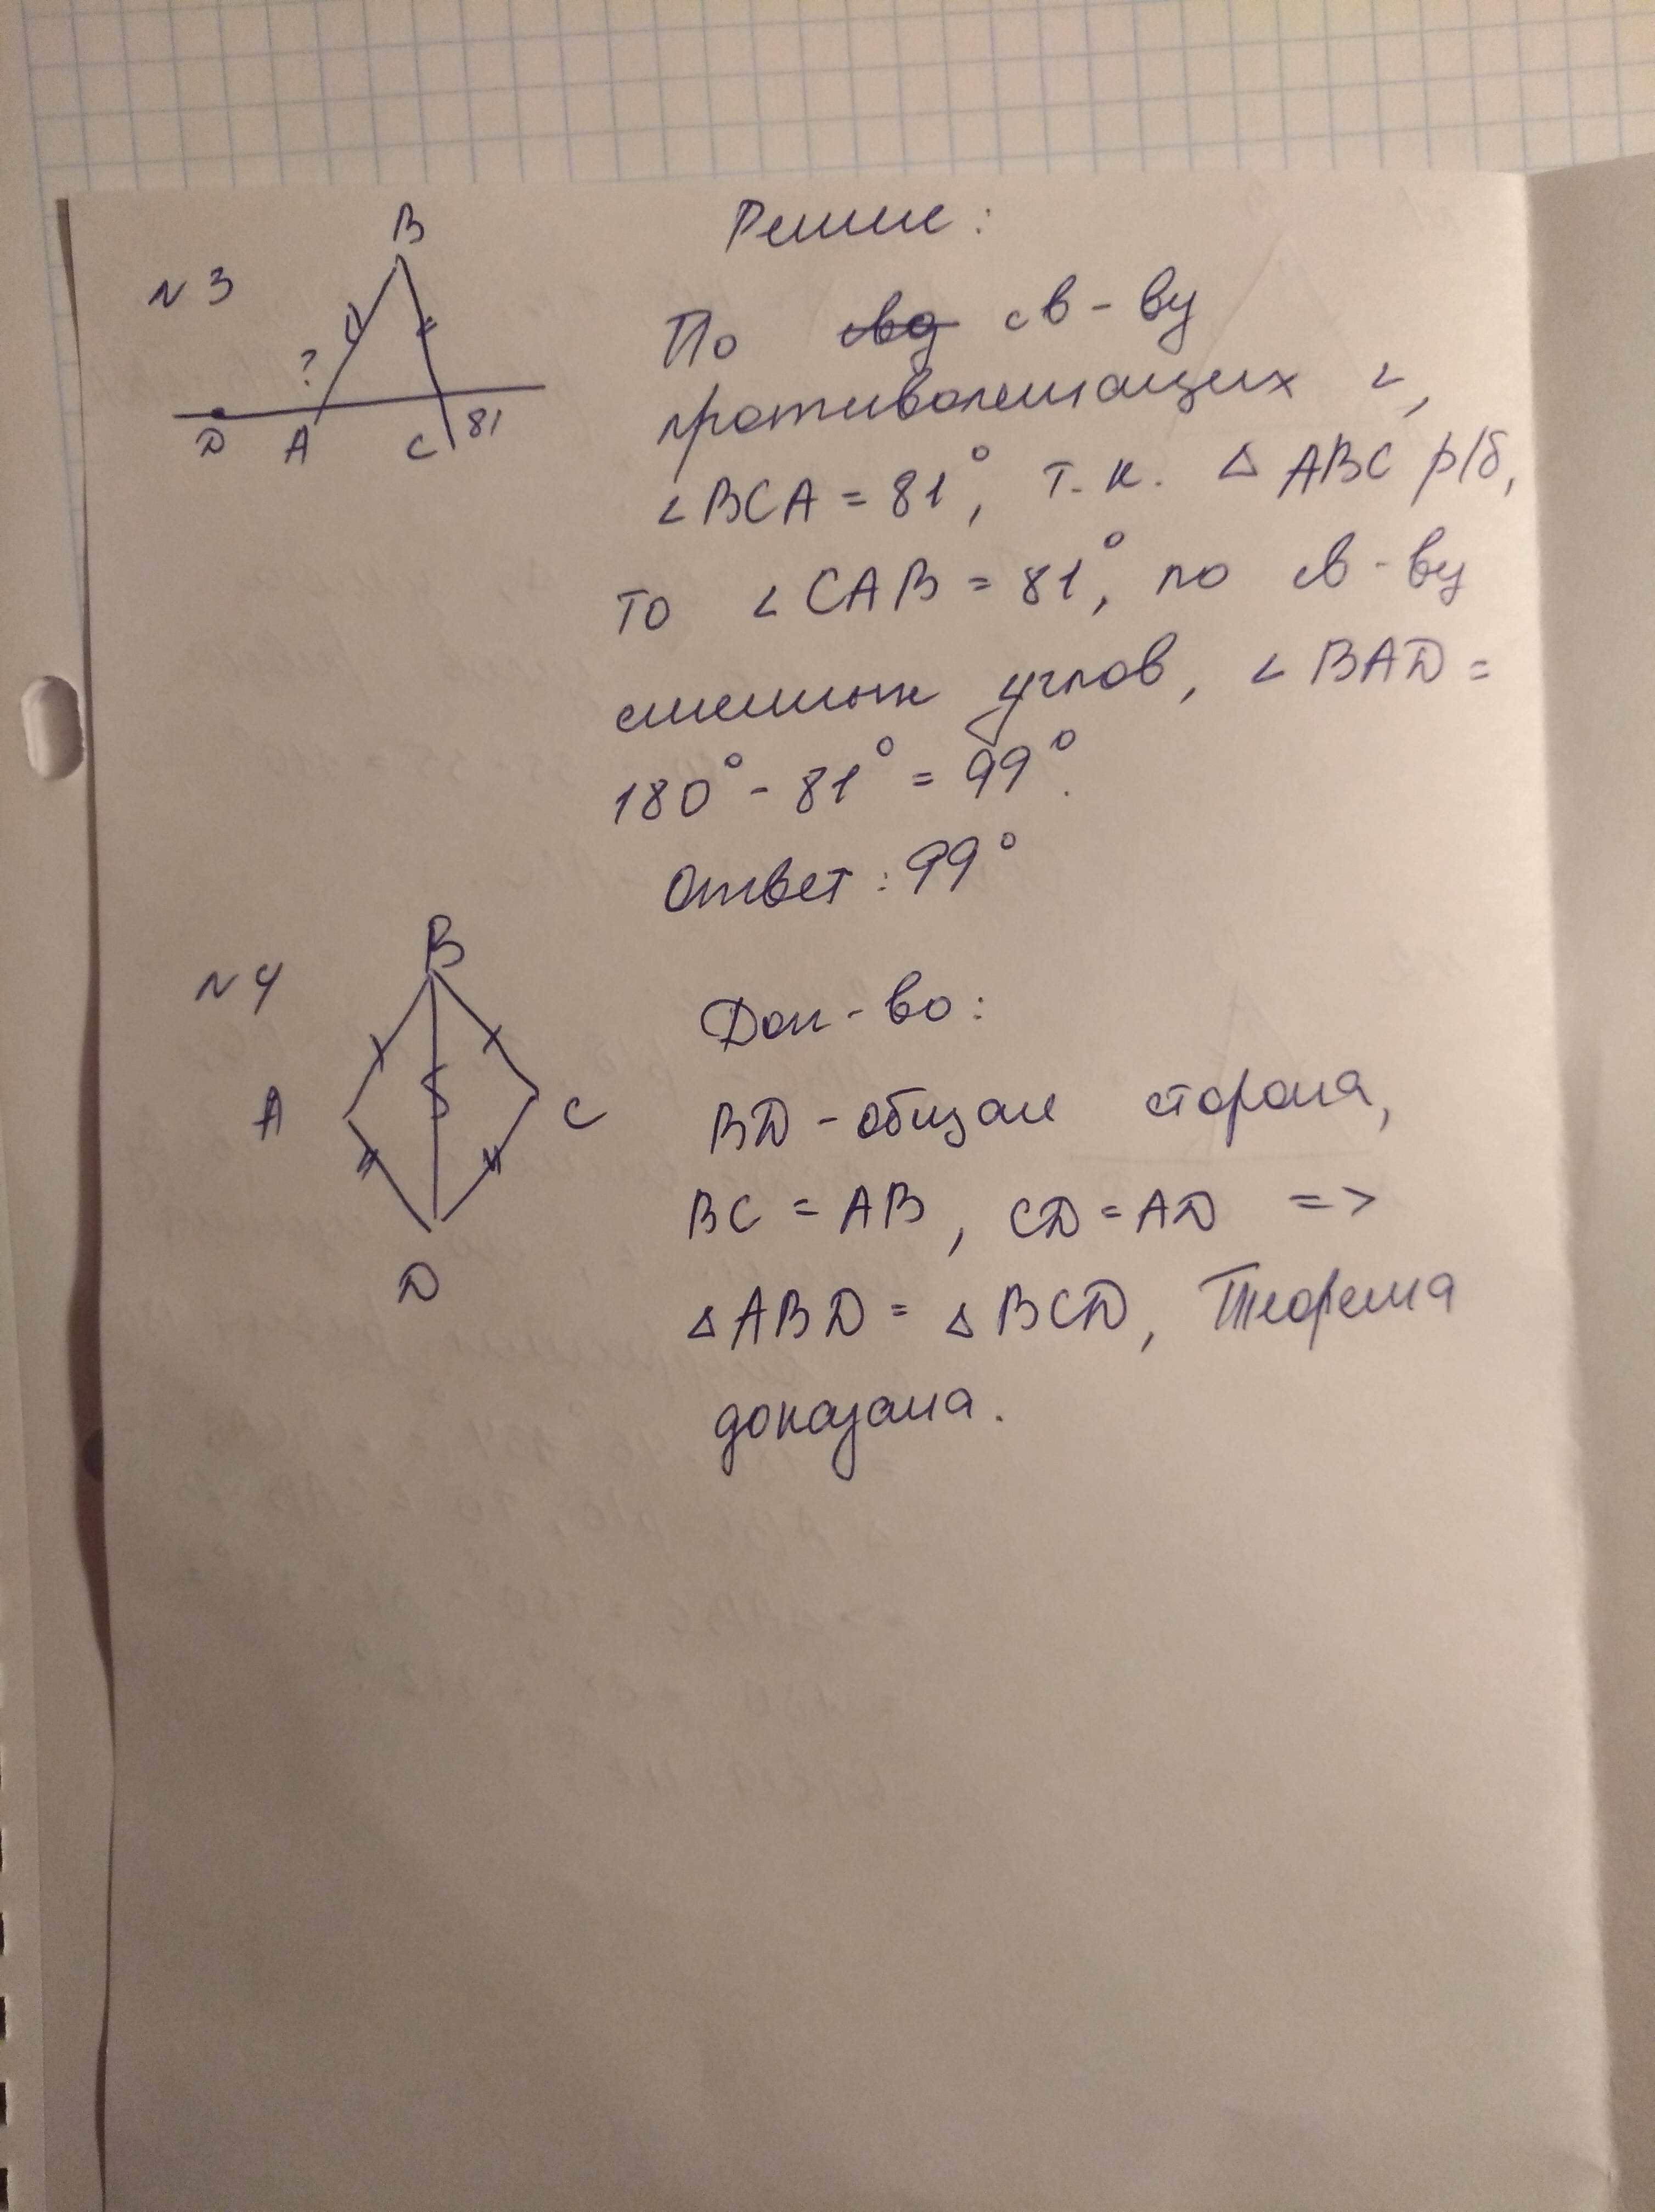 N 3
B
?
D A C 81
Решие:
По св-ву
противолежащих ∠,
∠BCA = 81°, т.к. △ ABC р/б,
то ∠CAB = 81°, по св-ву
смежных углов, ∠BAD =
180° - 81° = 99°.
Ответ: 99°
N 4
B
A
C
D
Док-во:
BD - общая сторона,
BC = AB, CD = AD =>
△ ABD = △ BCD, Теорема
доказана.